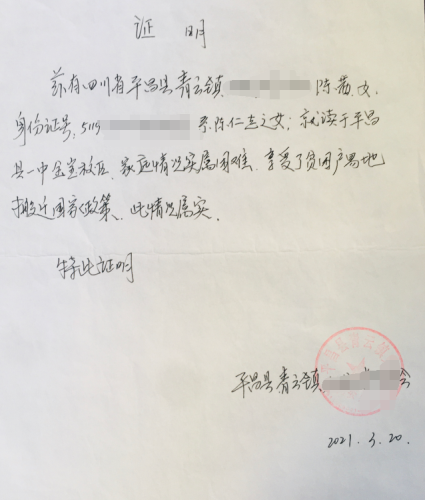 证 明
兹有四川省平昌县青云镇 陈茜,女,
身份证号:5119 系陈仁志之女;就读于平昌
县一中金宝校区、家庭情况实属困难、享受了贫困户易地
搬迁国家政策、此情况属实.
特此证明
平昌县青云镇 会
2021.3.20.